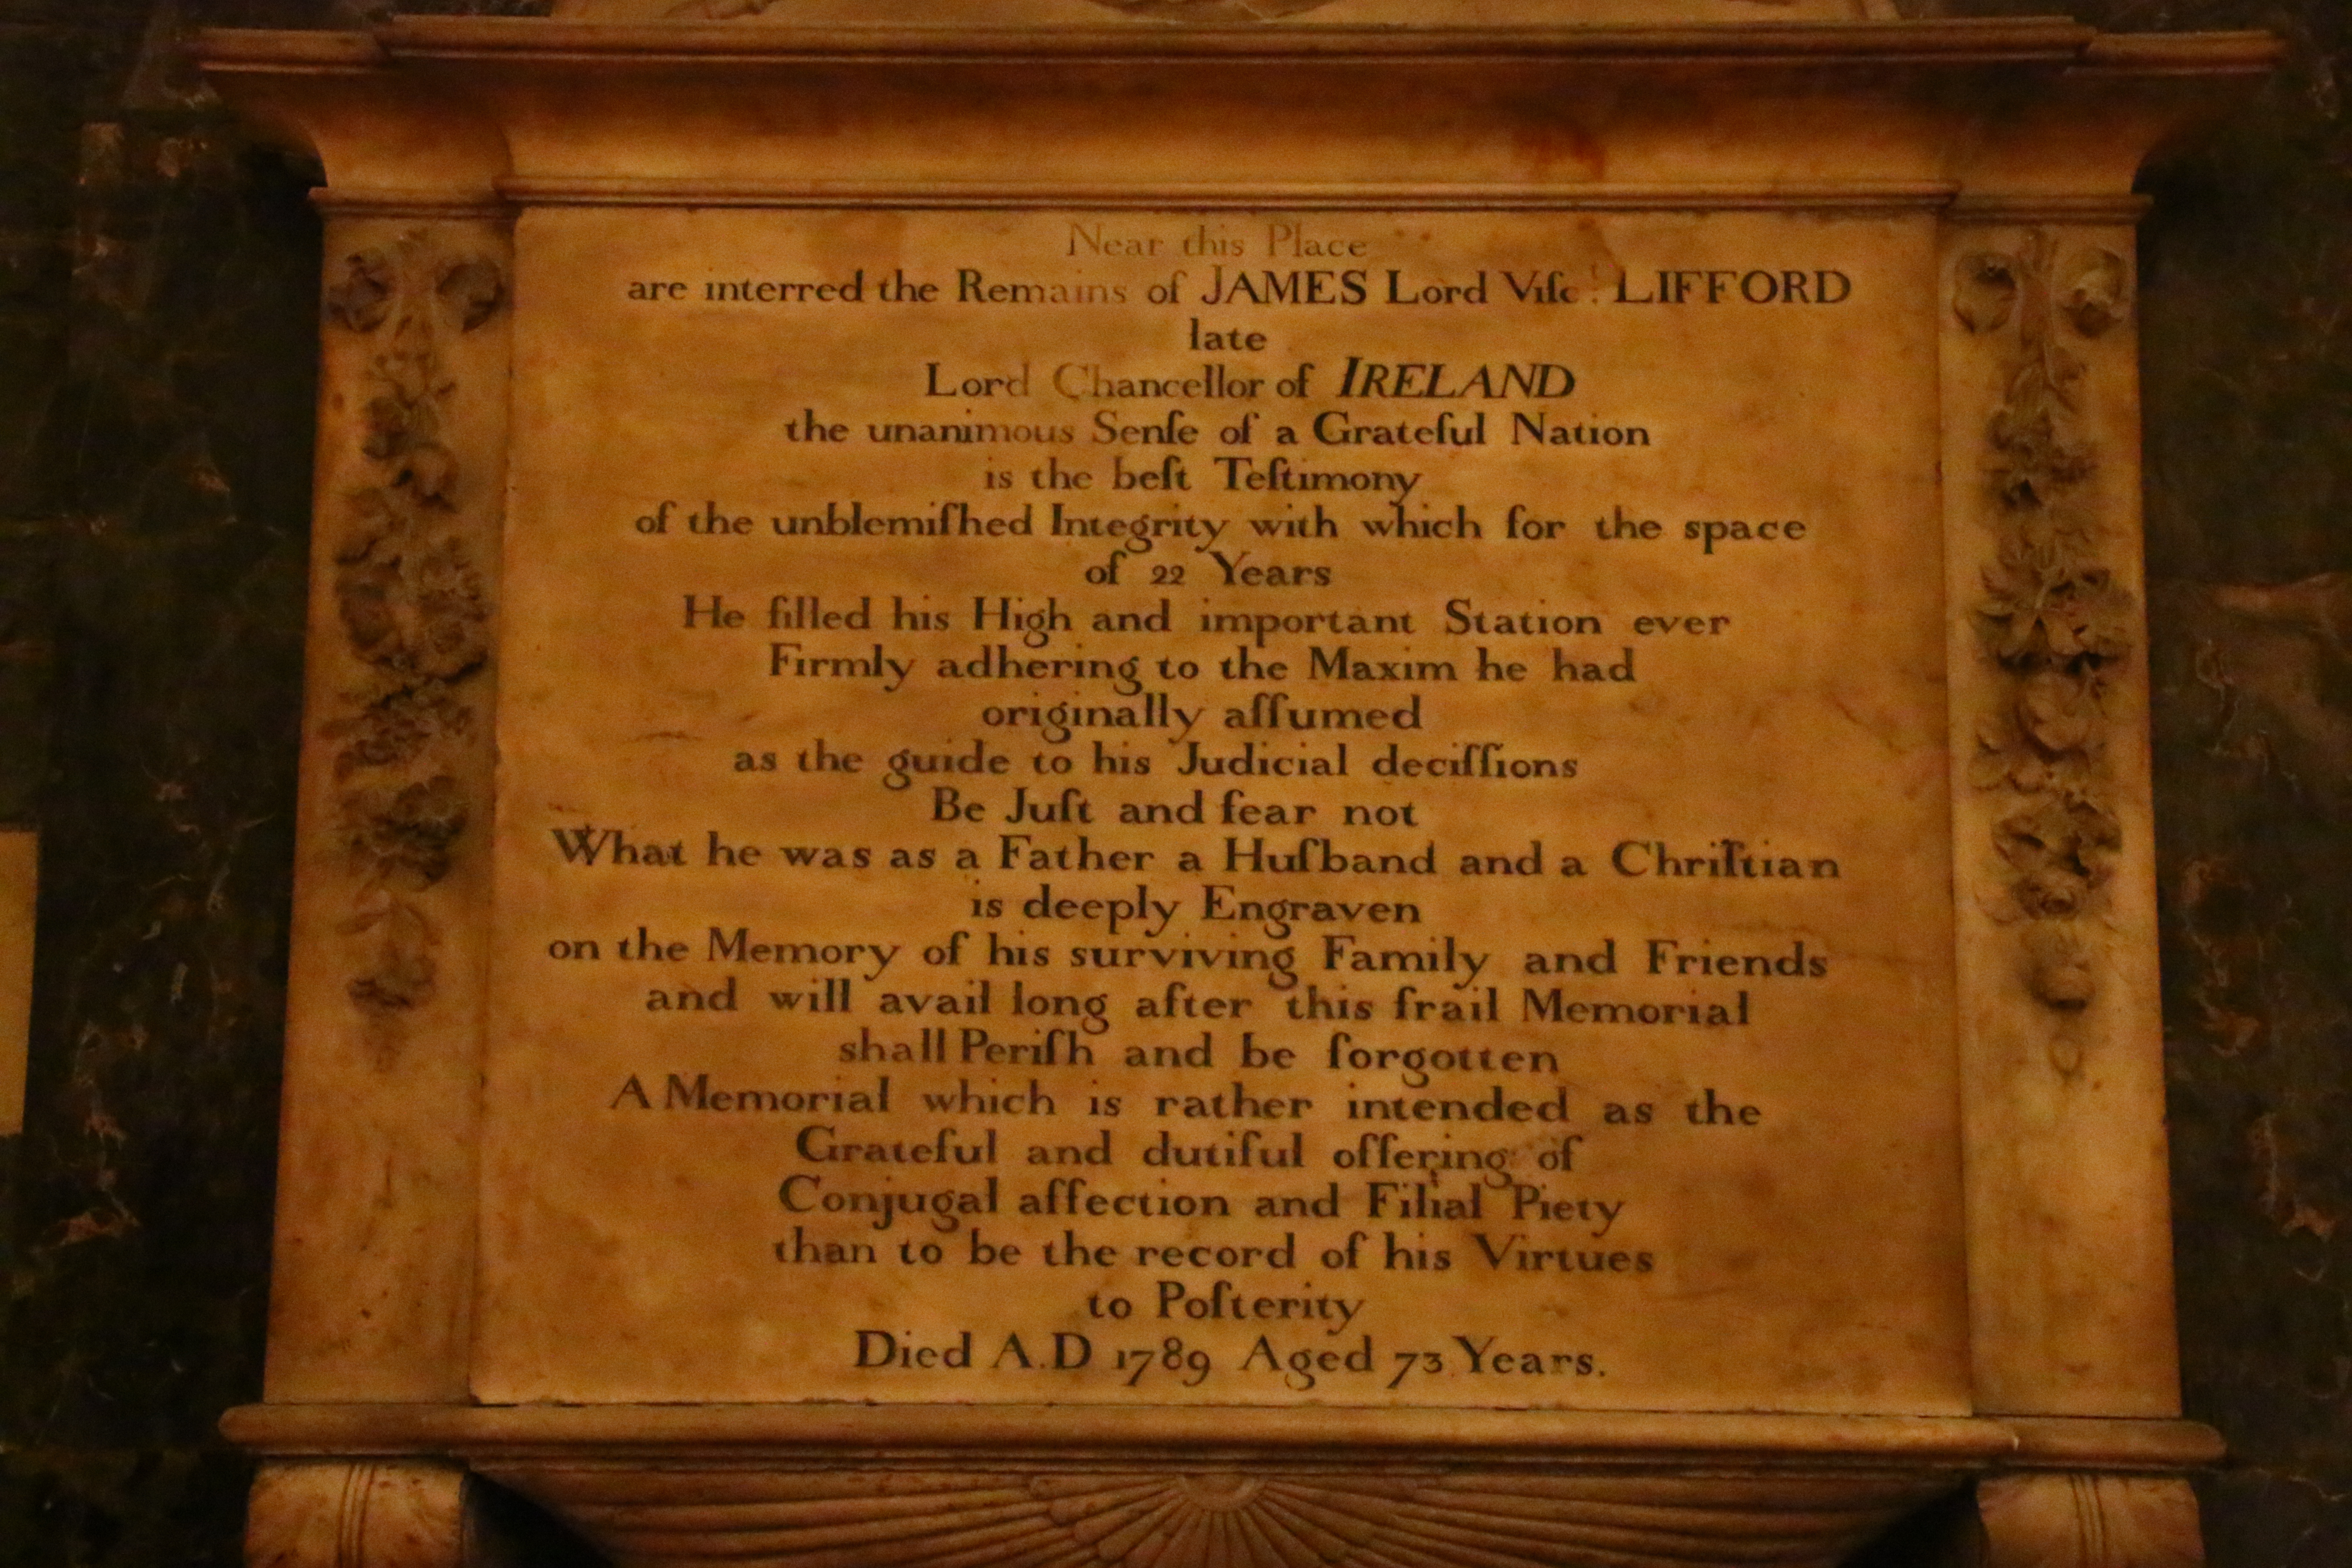 Near this Place
are interred the Remains of JAMES Lord Viſct. LIFFORD
late
Lord Chancellor of IRELAND
the unanimous Senſe of a Grateful Nation
is the beſt Teſtimony
of the unblemiſhed Integrity with which for the space
of 22 Years
He filled his High and important Station ever
Firmly adhering to the Maxim he had
originally aſſumed
as the guide to his Judicial deciſſions
Be Juſt and fear not
What he was as a Father a Huſband and a Chriſtian
is deeply Engraven
on the Memory of his surviving Family and Friends
and will avail long after this frail Memorial
shall Periſh and be forgotten
A Memorial which is rather intended as the
Grateful and dutiful offering of
Conjugal affection and Filial Piety
than to be the record of his Virtues
to Poſterity
Died A.D 1789 Aged 73 Years.